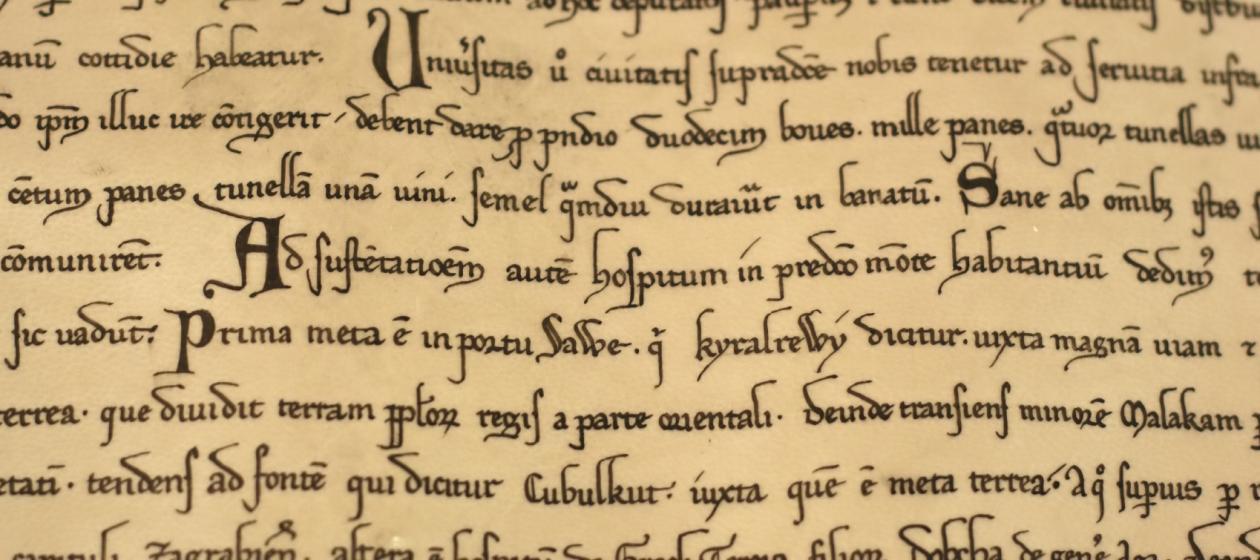 ad hoc deputatis
anū cottidie habeatur. Uniūsitas ů ciuitatis supradc̄e nobis tenetur ad seruitia
do ip̄m illuc ire cōtigerit debent dare ꝓ pndio duodecim boues. mille panes. qtuoꝛ tunellas
cētum panes tunellā unā uini. semel qmdiu durauit in banatū. Sane ab om̄ibꝫ istis
cōmuniret: Ad sustētatioēm autē hospitum in predc̄o mōte habitantiū dedim᷒
sic uadūt: Prima meta ē in portu Sawe. q̇ kyralrewy dicitur. iuxta magnā uiam ⁊
terrea. que diuidit terram regis a parte orientali. Deinde transiens minorē Malakam
etatī. tendens ad fontē qui dicitur Cubulkut. iuxta quē ē meta terrea. A q̊ superius ꝑ
capituli Zagrabien̄. altera